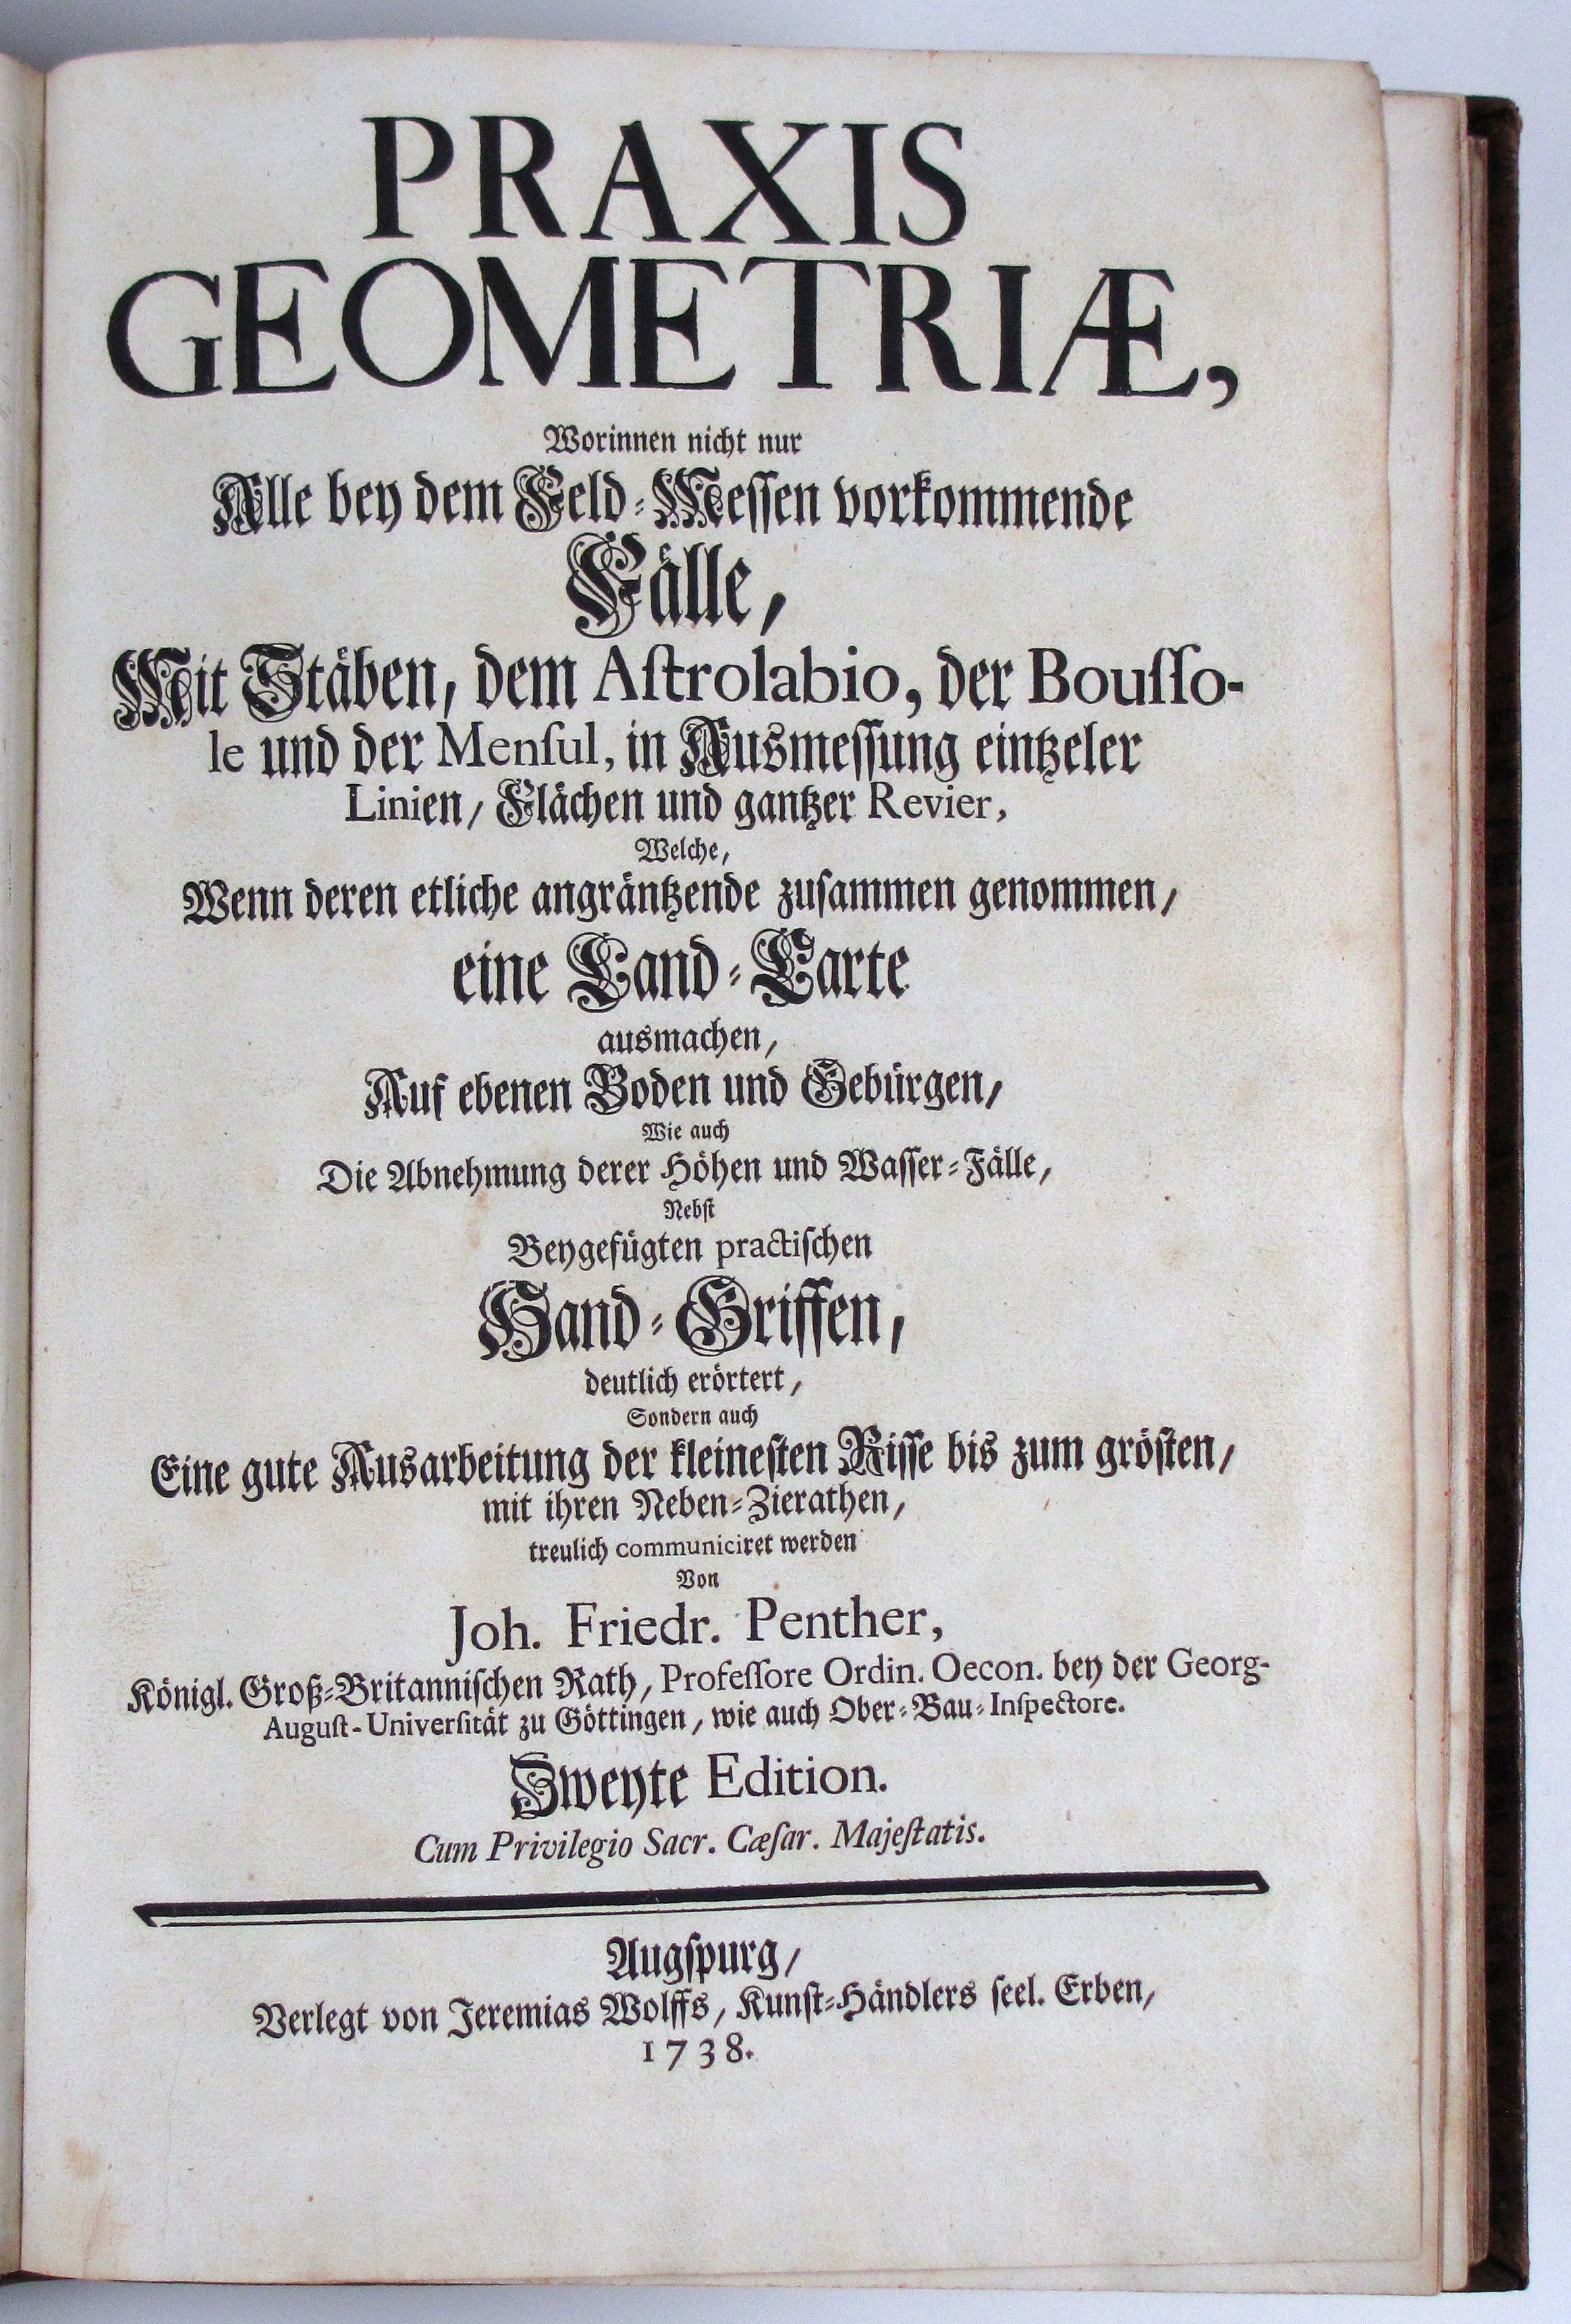 PRAXIS
GEOMETRIÆ,
Worinnen nicht nur
Alle bey dem Feld-Messen vorkommende
Fälle,
Mit Stäben, dem Aſtrolabio, der Bouſſo-
le und der Menſul, in Ausmeſſung eintzeler
Linien/ Flächen und gantzer Revier,
Welche,
Wenn deren etliche angräntzende zuſammen genommen/
eine Land-Carte
ausmachen/
Auf ebenen Boden und Gebürgen/
Wie auch
Die Abnehmung derer Höhen und Waſſer-Fälle,
Nebſt
Beygefügten practiſchen
Hand-Griffen,
deutlich erörtert/
Sondern auch
Eine gute Ausarbeitung der kleineſten Riſſe bis zum gröſten/
mit ihren Neben-Zierathen,
treulich communiciret werden
Von
Joh. Friedr. Penther,
Königl. Groß-Britanniſchen Rath, Profeſſore Ordin. Oecon. bey der Georg-
Auguſt-Univerſität zu Göttingen, wie auch Ober-Bau-Inſpectore.
Zweyte Edition.
Cum Privilegio Sacr. Cæſar. Majeſtatis.
Augſpurg/
Verlegt von Jeremias Wolffs, Kunſt-Händlers ſeel. Erben,
1738.